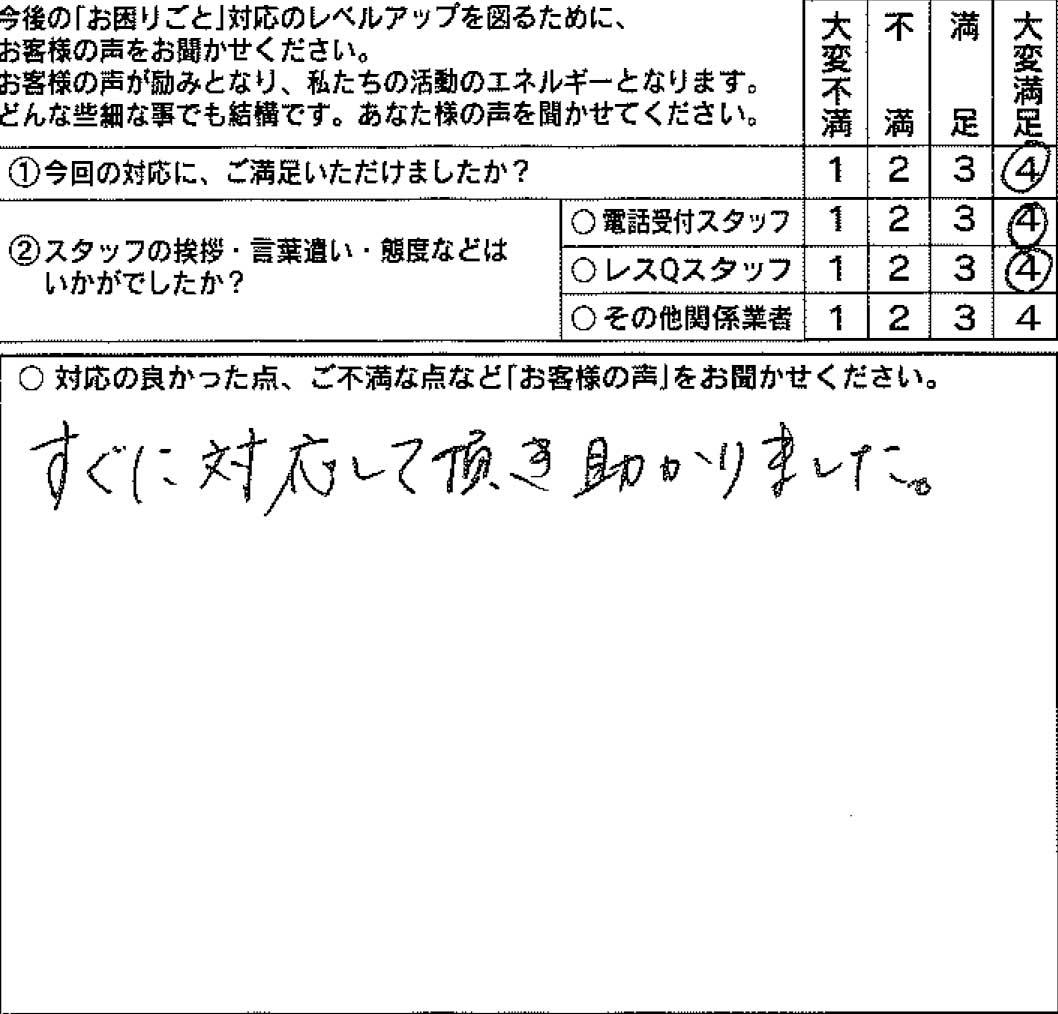 今後の「お困りごと」対応のレベルアップを図るために、
お客様の声をお聞かせください。
お客様の声が励みとなり、私たちの活動のエネルギーとなります。
どんな些細な事でも結構です。あなた様の声を聞かせてください。
大変不満 不満 満足 大変満足
①今回の対応に、ご満足いただけましたか？ 1 2 3 4
②スタッフの挨拶・言葉遣い・態度などは
いかがでしたか？
○電話受付スタッフ 1 2 3 4
○レスQスタッフ 1 2 3 4
○その他関係業者 1 2 3 4
○ 対応の良かった点、ご不満な点など「お客様の声」をお聞かせください。
すぐに対応して頂き助かりました。